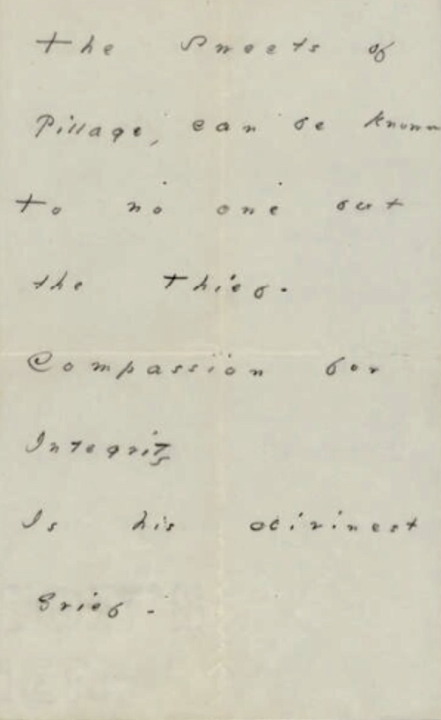 The Sweets of
Pillage, can be known
to no one but
the Thief -
Compassion for
Integrity
Is his divinest
Grief -